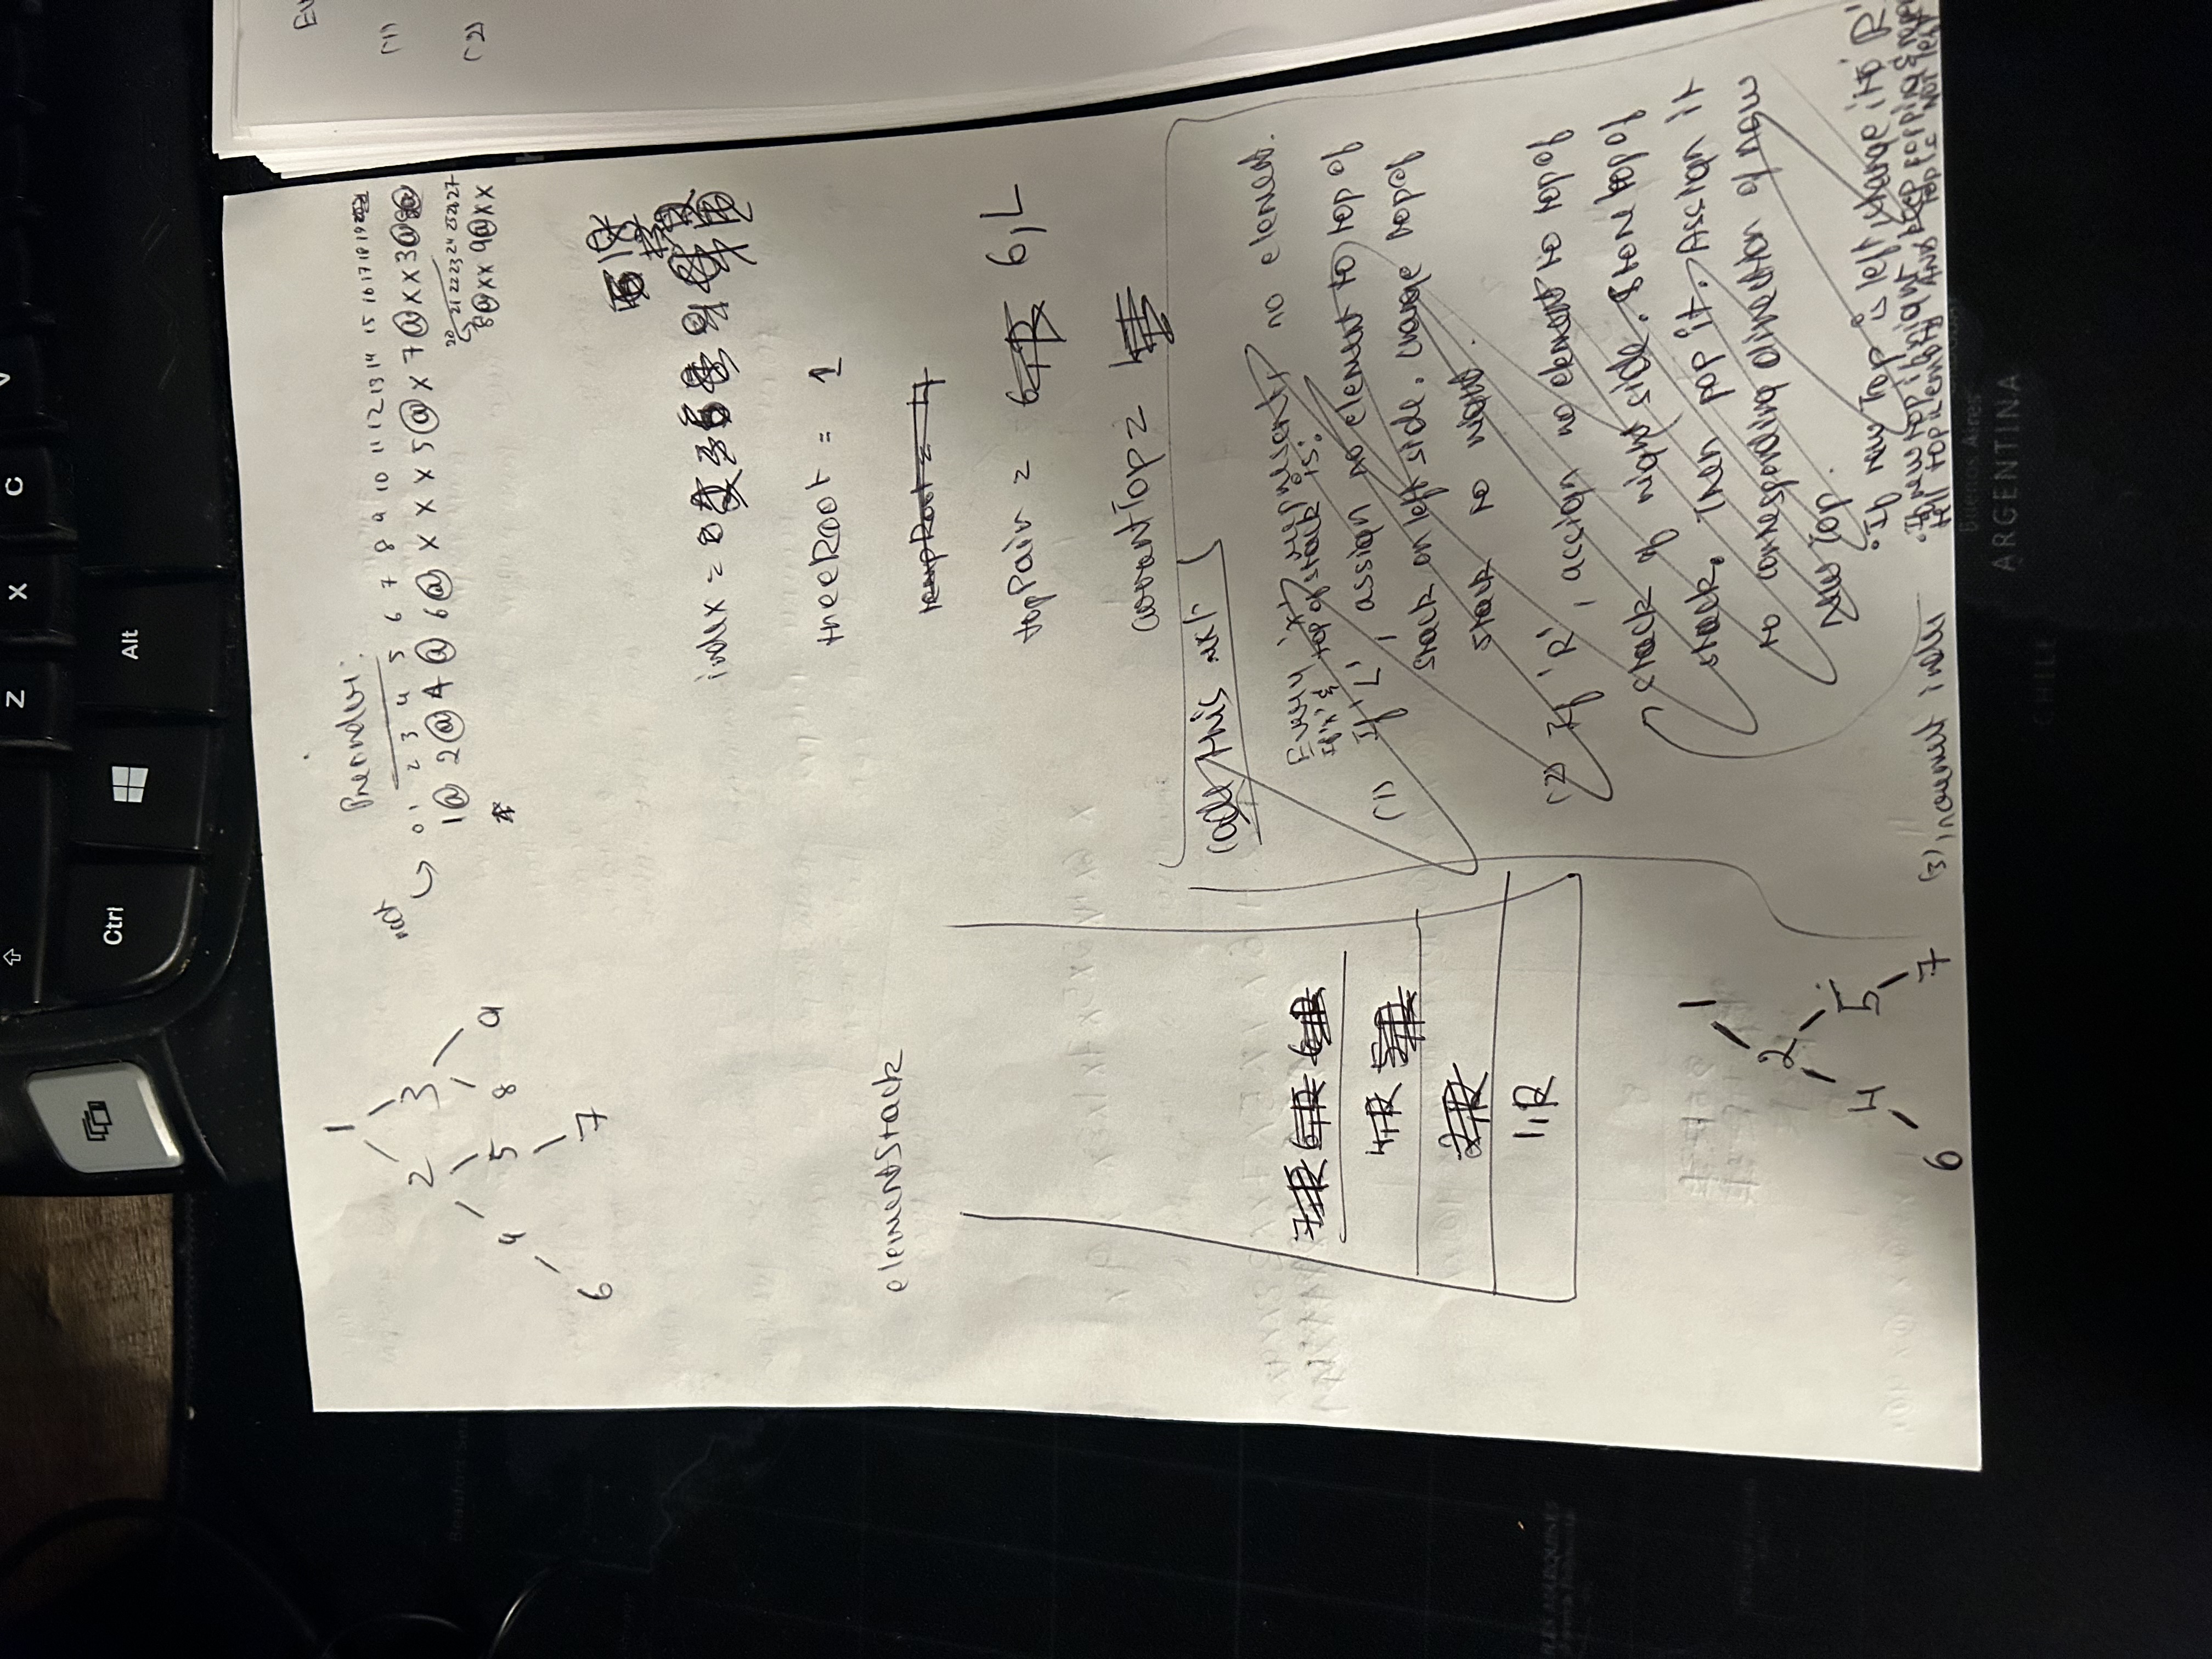 Z X C V
Ctrl Alt
1
2 3
4 5 8 9
6 7
Preorder:
root
0 1 2 3 4 5 6 7 8 9 10 11 12 13 14 15 16 17 18 19
1@ 2@ 4@ 6@ x x x 5@ x 7@ x x 3@
20 21 22 23 24 25 26 27
8@xx 9@xx
index =
18
treeRoot = 1
tempRoot = 4
topPair = 6,R 6,L
currentTop =
elementStack
7,R 6,R 6,R
4,R 5,R
2,R
1,R
code this next
Every 'x' represents no element.
If 'x' & top of stack is:
(1) If 'L', assign no element to top of
stack on left side. Change top of
stack to right.
(2) If 'R', assign no element to top of
stack of right side. Store top of
stack. Then pop it. Assign it
to corresponding direction of new
new top.
• If new top is left, change it to 'R'
• If new top is right, keep popping &
till top is empty AND top is NOT left
(3) increment index
1
2
4 5
6 7
(1)
(2)
Buenos Aires
ARGENTINA
CHILE